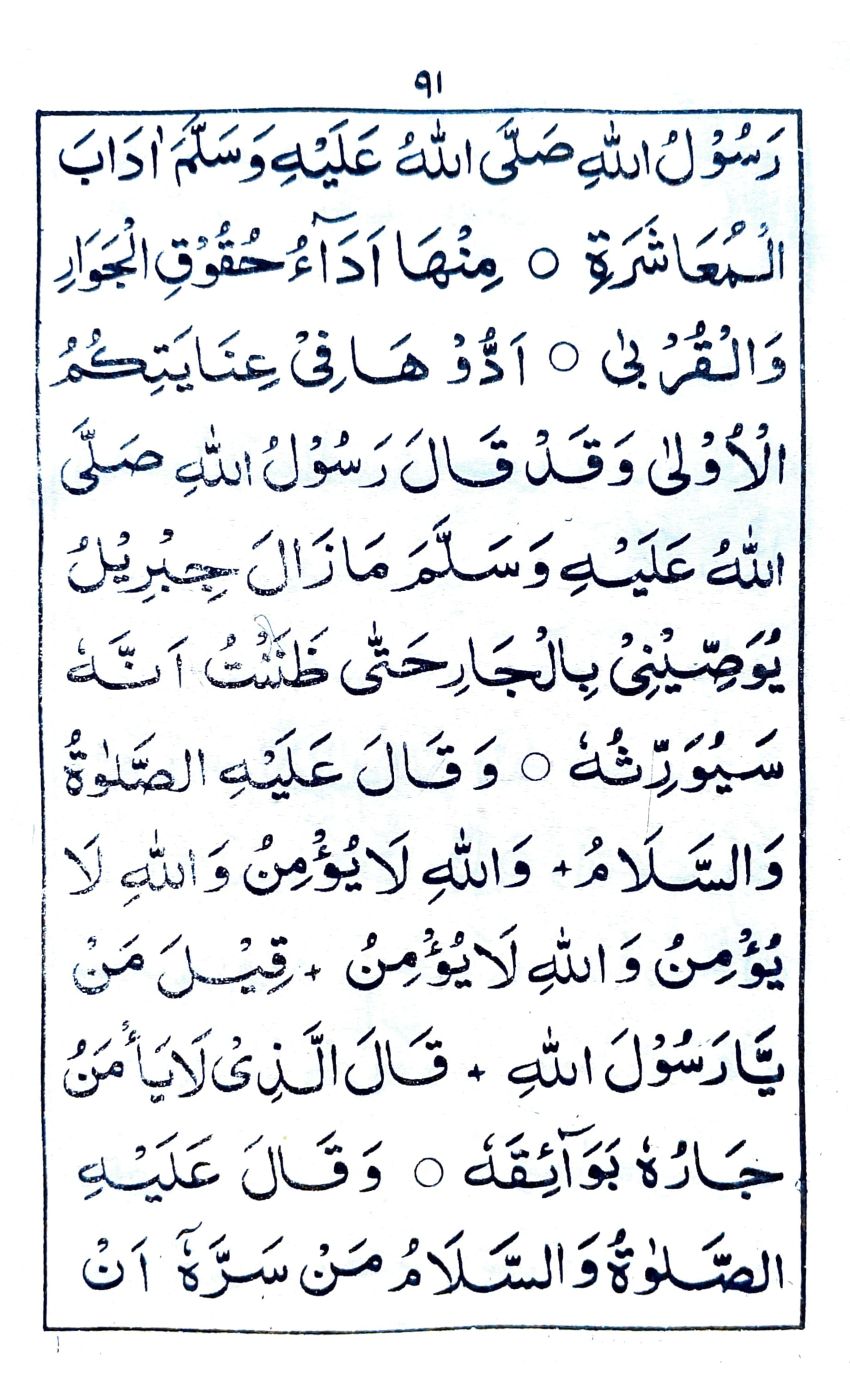 ٩١
رَسُوْلُ اللّٰهِ صَلَّى اللّٰهُ عَلَيْهِ وَسَلَّمَ اٰدَابَ
الْمُعَاشَرَةِ ○ مِنْهَا اَدَآءُ حُقُوْقِ الْجَوَارِ
وَالْقُرْبٰى ○ اَدُّوْهَا فِىْ عِنَايَتِكُمُ
الْاُوْلٰى وَقَدْ قَالَ رَسُوْلُ اللّٰهِ صَلَّى
اللّٰهُ عَلَيْهِ وَسَلَّمَ مَا زَالَ جِبْرِيْلُ
يُوَصِّيْنِىْ بِالْجَارِ حَتّٰى ظَنَنْتُ اَنَّهٗ
سَيُوَرِّثُهٗ ○ وَقَالَ عَلَيْهِ الصَّلٰوةُ
وَالسَّلَامُ + وَاللّٰهِ لَا يُؤْمِنُ وَاللّٰهِ لَا
يُؤْمِنُ وَاللّٰهِ لَا يُؤْمِنُ + قِيْلَ مَنْ
يَّا رَسُوْلَ اللّٰهِ + قَالَ الَّذِىْ لَا يَأْمَنُ
جَارُهٗ بَوَآئِقَهٗ ○ وَقَالَ عَلَيْهِ
الصَّلٰوةُ وَالسَّلَامُ مَنْ سَرَّهٗٓ اَنْ